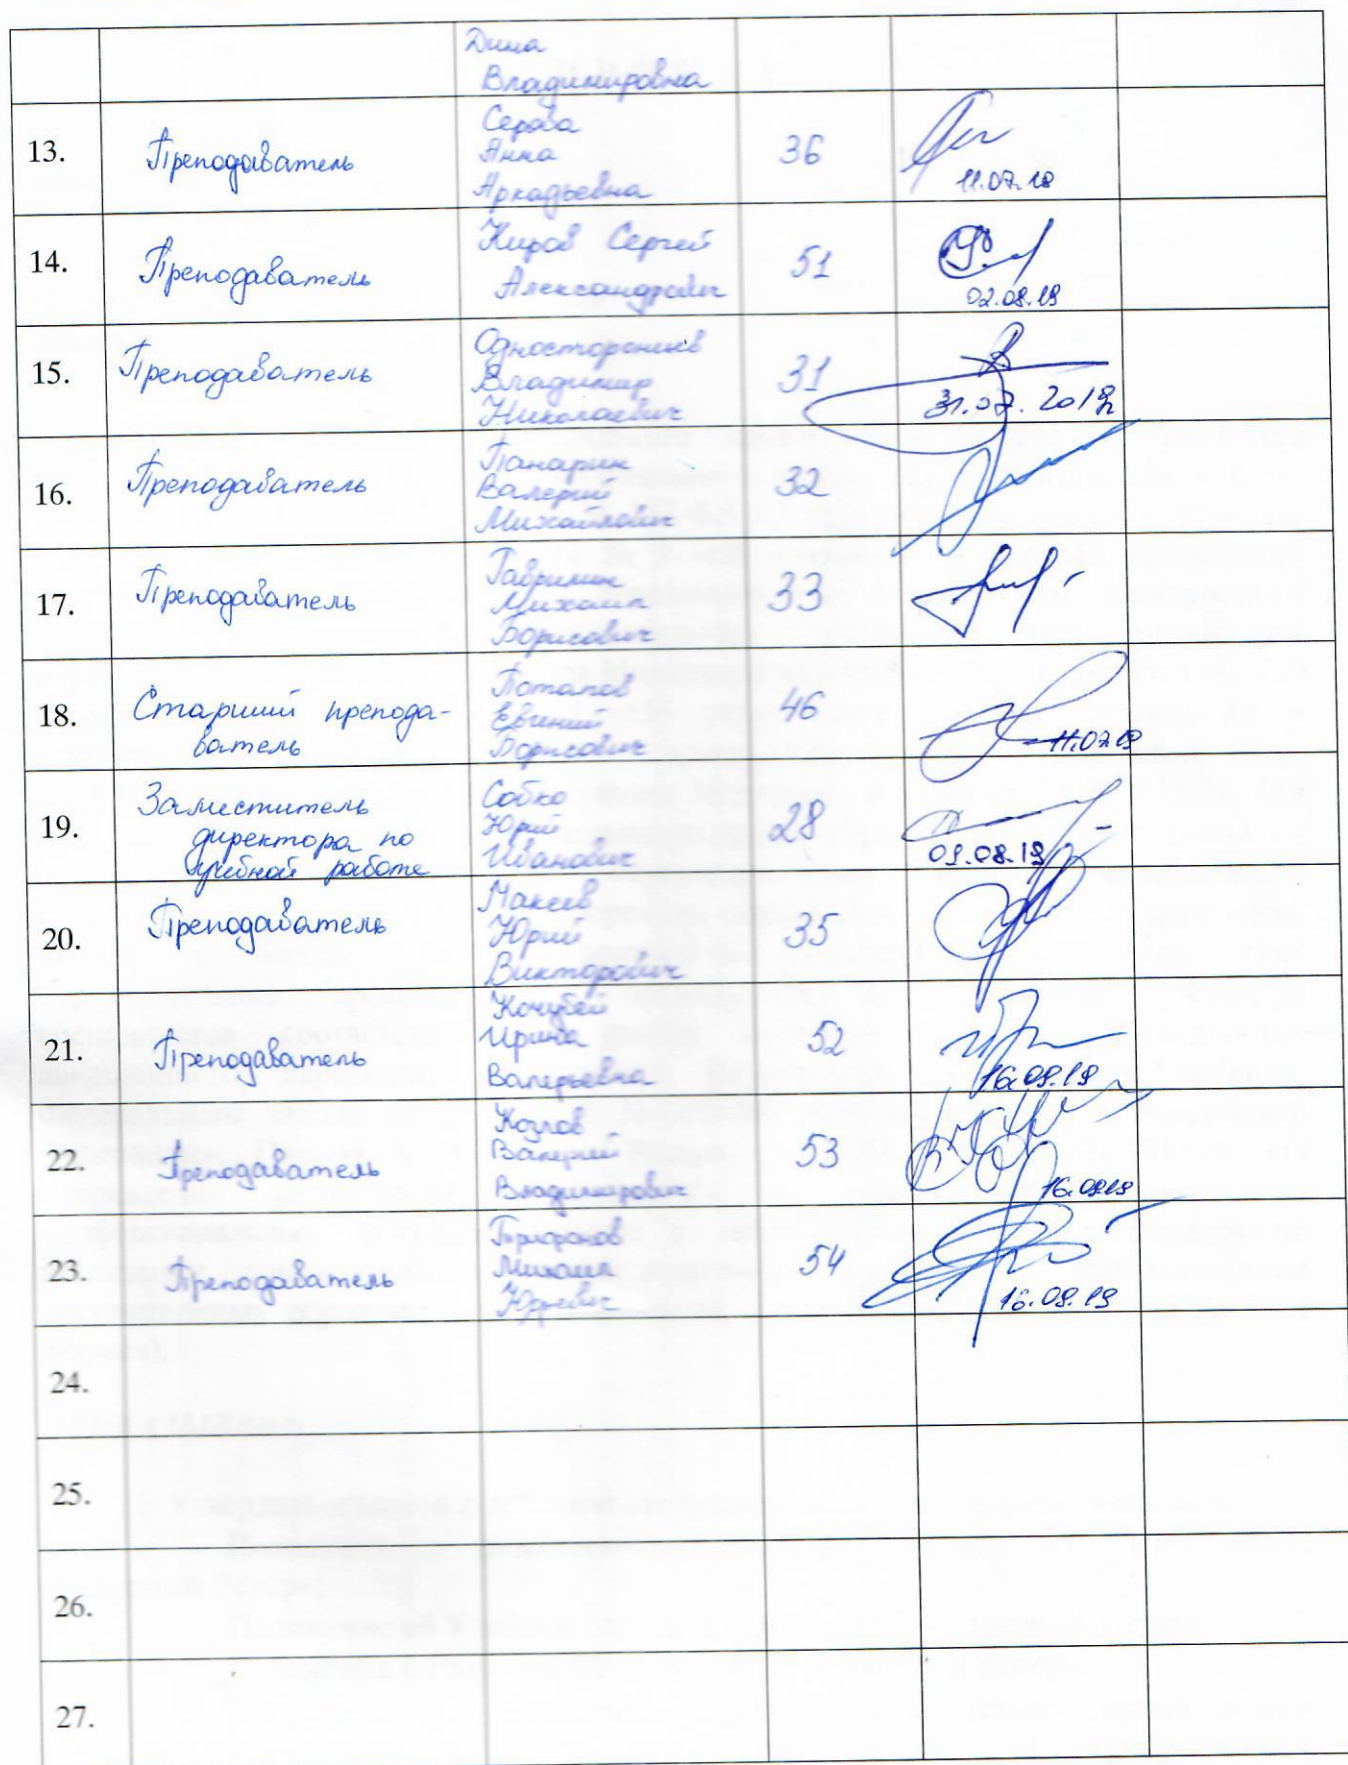 Дина
Владимировна
13. Преподаватель Серова 36
Анна
Аркадьевна 11.07.18
14. Преподаватель Киров Сергей 51
Александрович 02.08.19
15. Преподаватель Односторонцев 31
Владимир
Николаевич 31.07.2019
16. Преподаватель Панарин 32
Валерий
Михайлович
17. Преподаватель Гаврилин 33
Михаил
Борисович
18. Старший препода- Потапов 46
ватель Евгений
Борисович 11.07.19
19. Заместитель Собко 28
директора по Юрий
учебной работе Иванович 01.08.19
20. Преподаватель Макеев 35
Юрий
Викторович
21. Преподаватель Кочубей 52
Ирина
Валерьевна 16.09.19
22. Преподаватель Козлов 53
Валерий
Владимирович 16.09.19
23. Преподаватель Трифонов 54
Михаил
Юрьевич 16.09.19
24.
25.
26.
27.